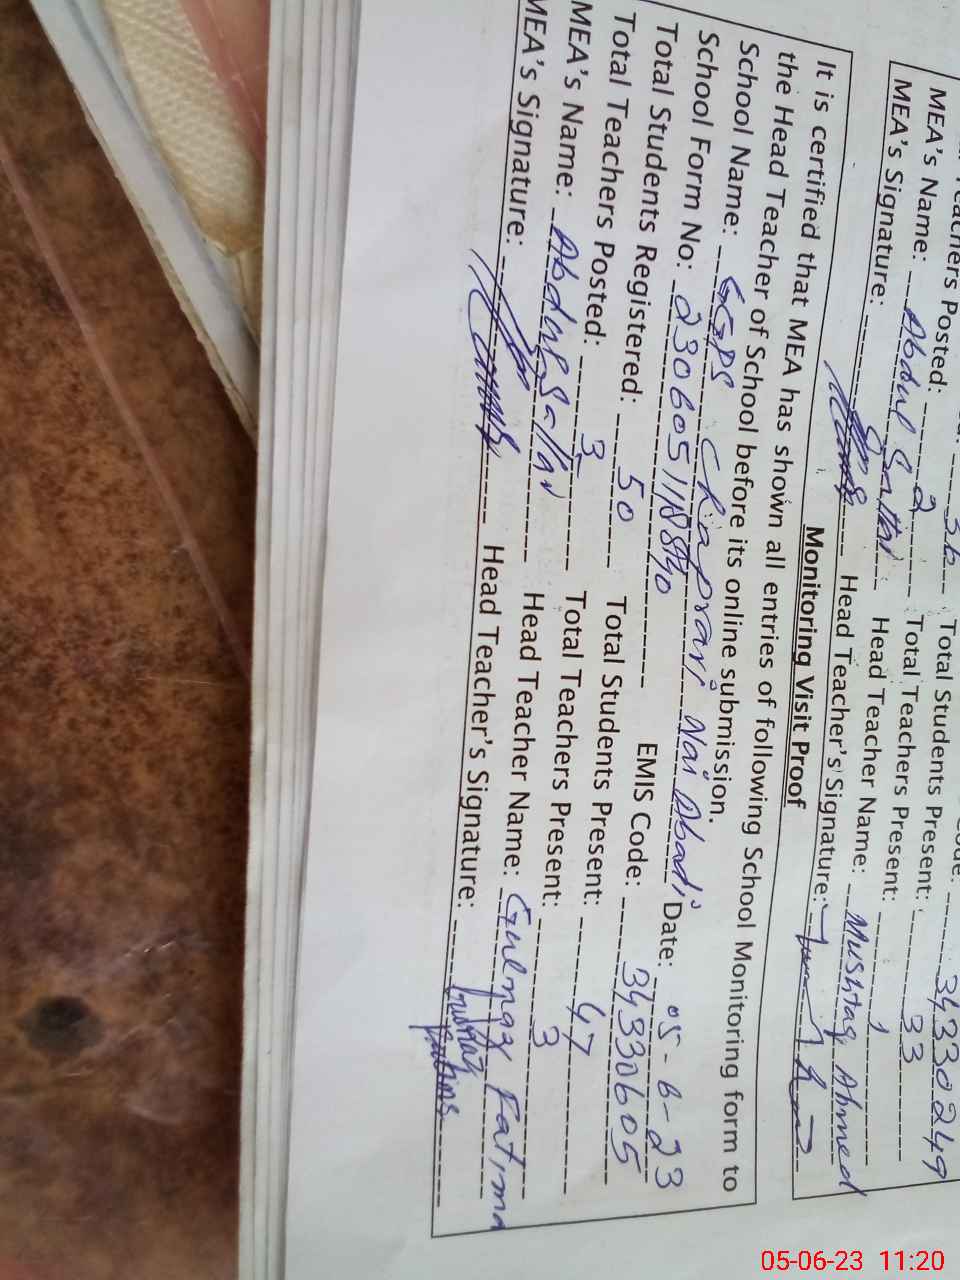 Teachers Posted: 2 Total Teachers Present: 1
MEA's Name: Abdul Sattar Head Teacher Name: Mushtaq Ahmed
MEA's Signature: Head Teacher's Signature:
Monitoring Visit Proof
It is certified that MEA has shown all entries of following School Monitoring form to
the Head Teacher of School before its online submission.
School Name: GGPS Chapravi Nai Abadi Date: 05-6-23
School Form No: 23060511118840 EMIS Code: 34330605
Total Students Registered: 50 Total Students Present: 47
Total Teachers Posted: 3 Total Teachers Present: 3
MEA's Name: Abdul Sattar Head Teacher Name: Gulnaz Fatima
MEA's Signature: Head Teacher's Signature:
34330249
Total Students Present: 33
05-06-23 11:20